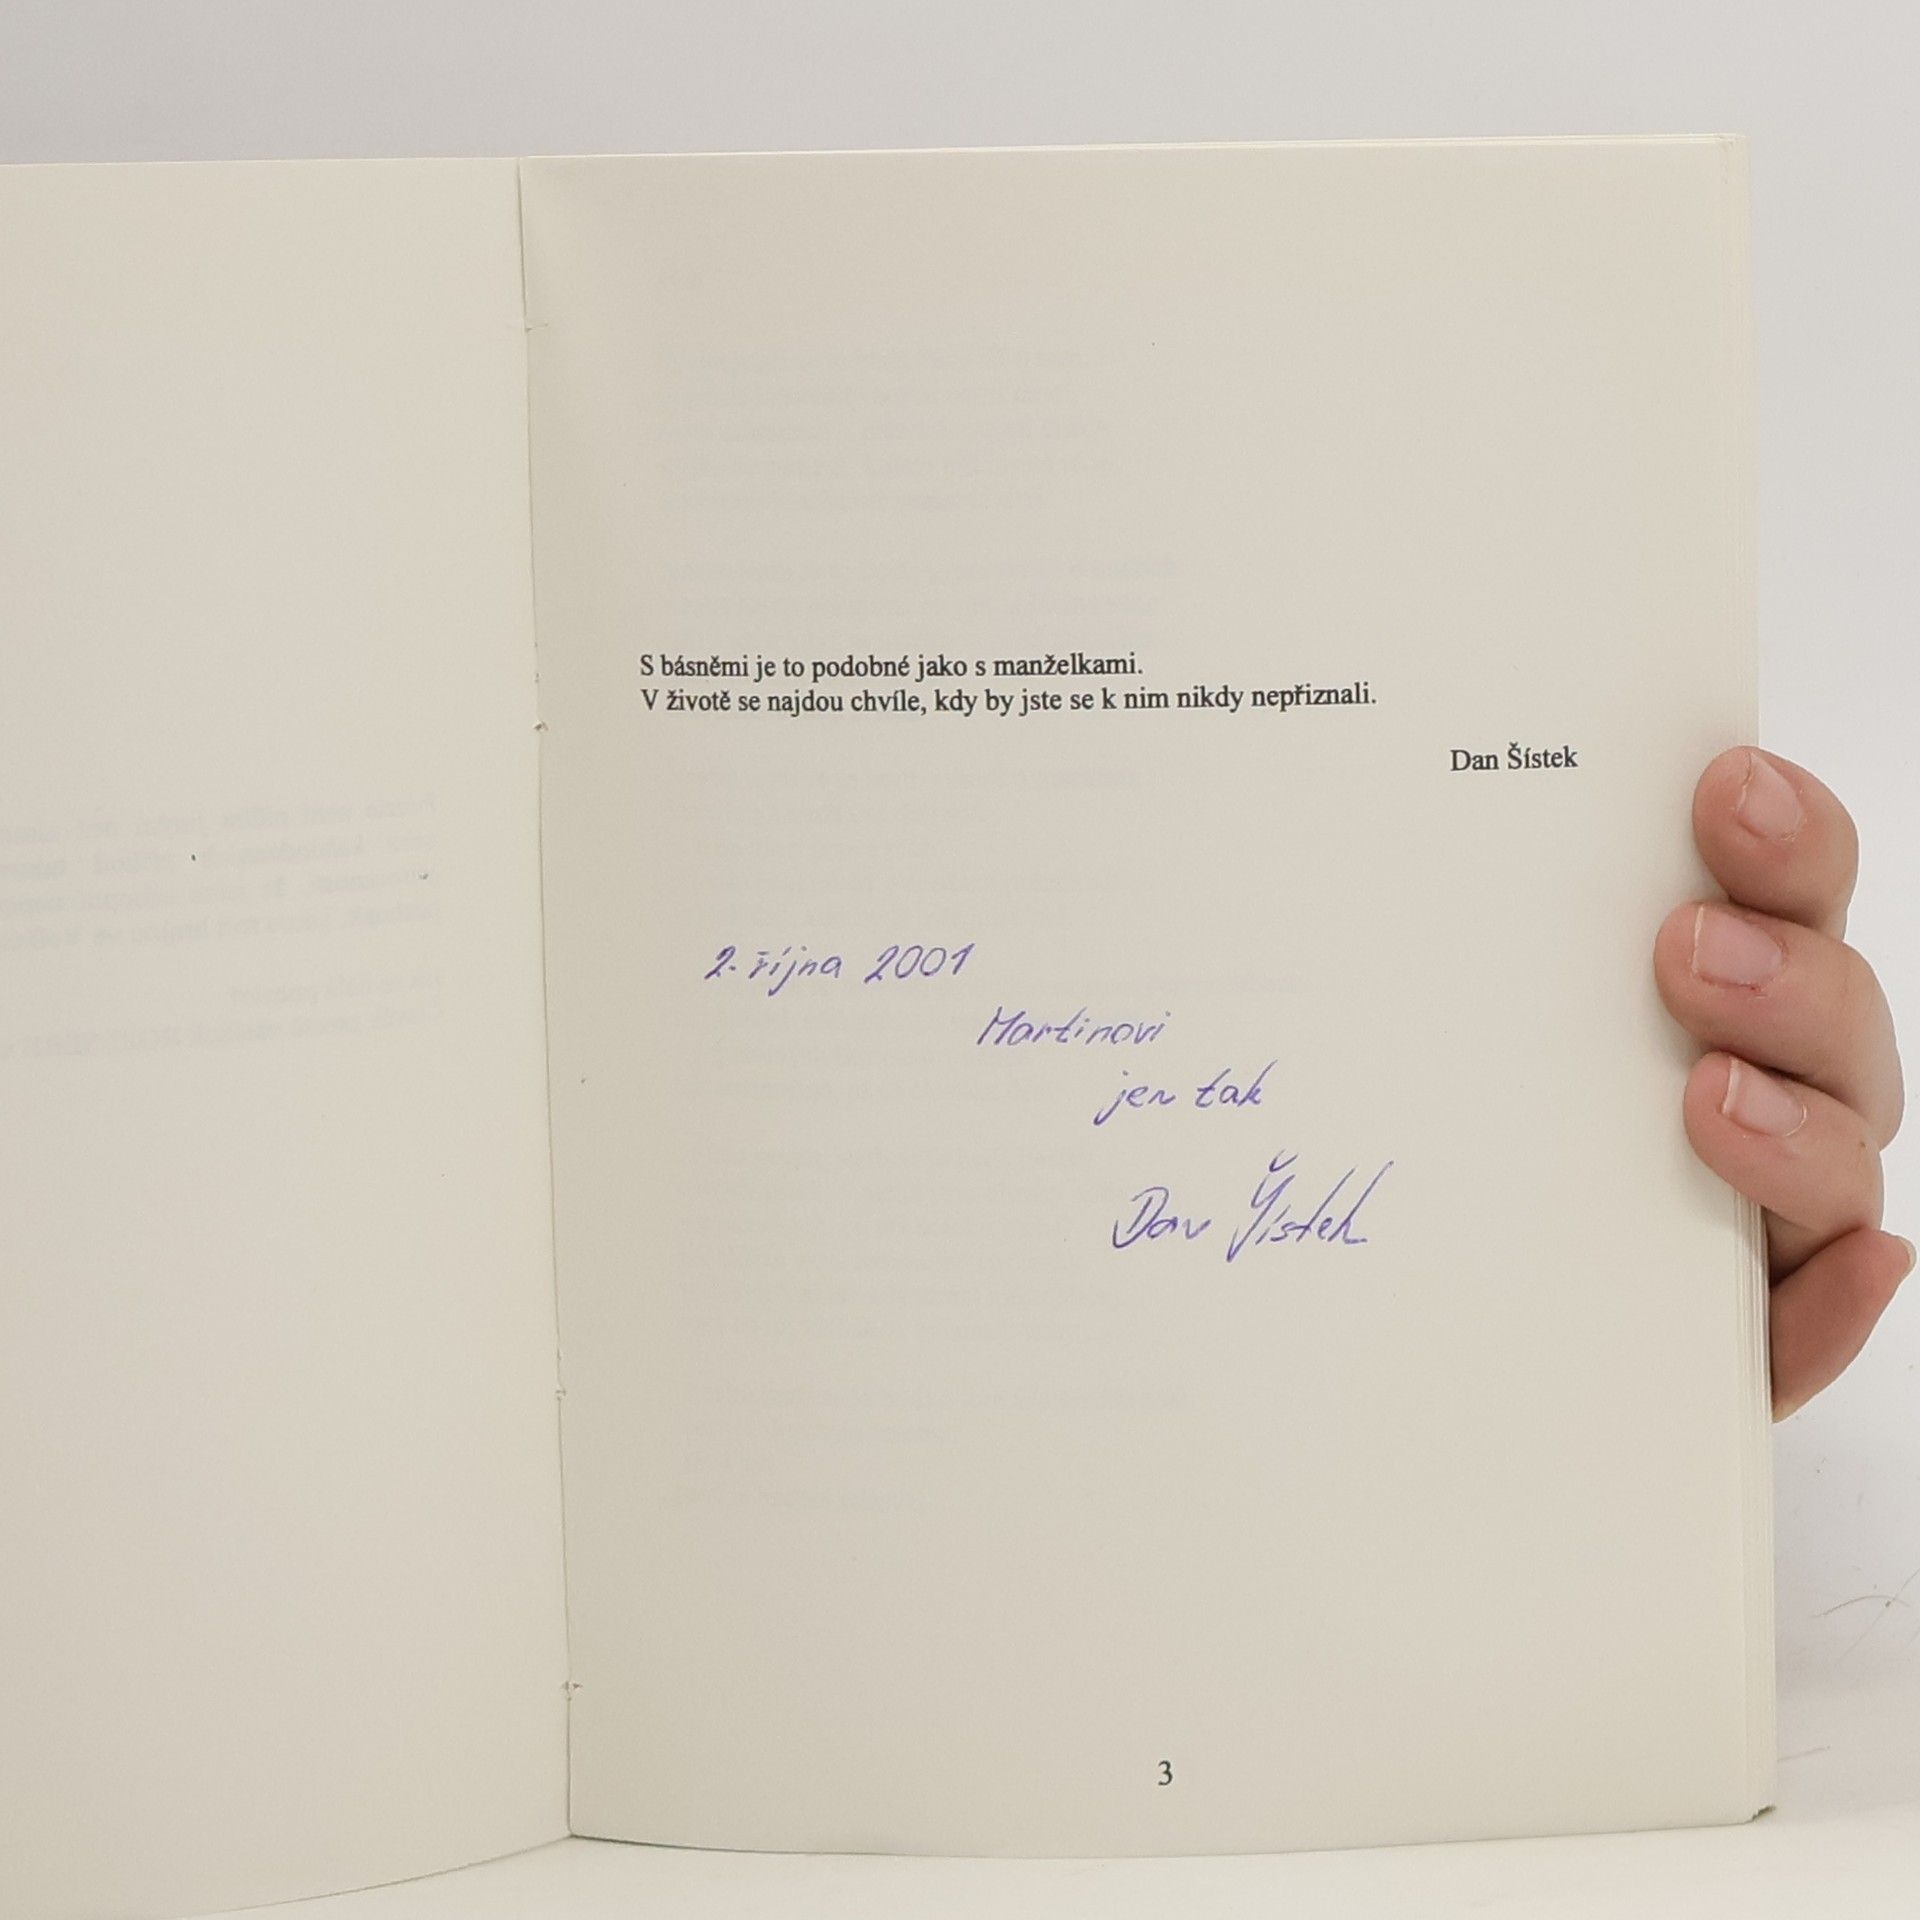 S básněmi je to podobné jako s manželkami.
V životě se najdou chvíle, kdy by jste se k nim nikdy nepřiznali.
Dan Šístek
2. října 2001
Martinovi
jen tak
Dan Šístek
3